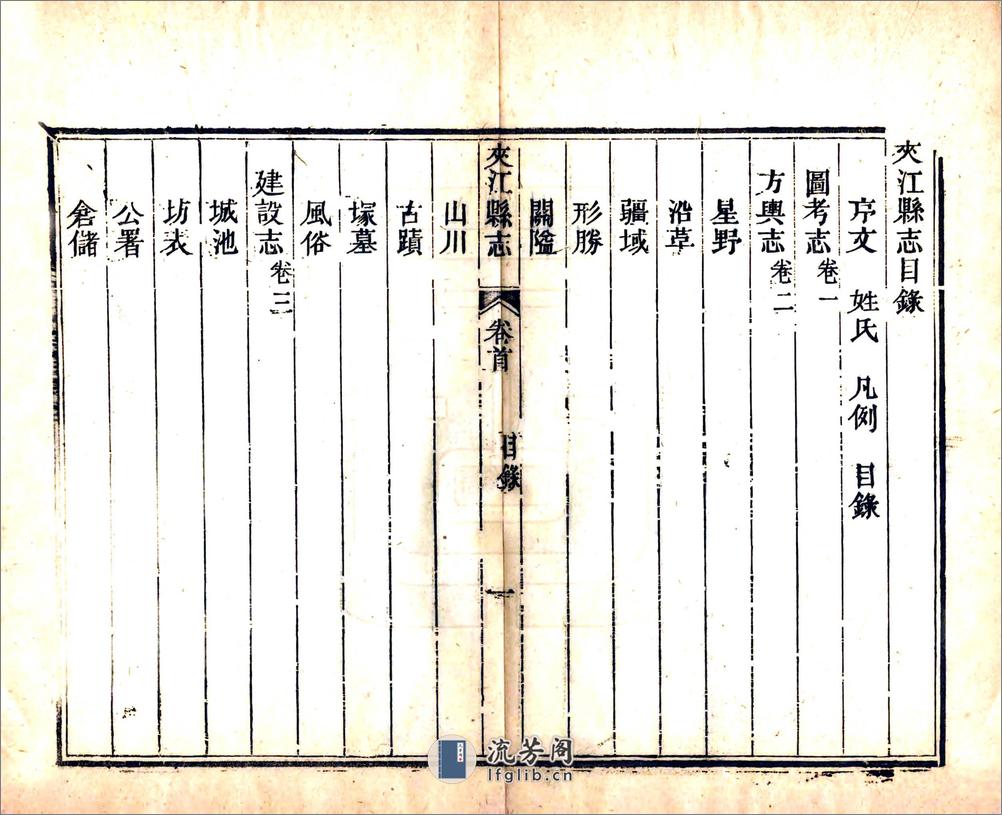 夾江縣志目錄
序文 姓氏 凡例 目錄
圖考志卷一
方輿志卷二
星野
沿革
疆域
形勝
關隘
夾江縣志 卷首 目錄 一
山川
古蹟
塚墓
風俗
建設志卷三
城池
坊表
公署
倉儲
流芳阁
lfglib.cn